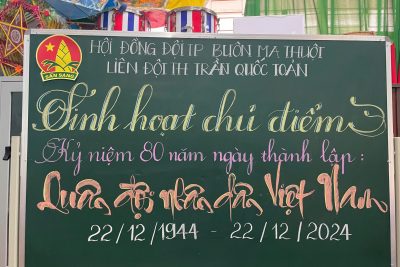 HỘI ĐỒNG ĐỘI TP BUÔN MA THUỘT
LIÊN ĐỘI TH TRẦN QUỐC TOẢN
SẴN SÀNG
Sinh hoạt chủ điểm
Kỷ niệm 80 năm ngày thành lập :
Quân đội nhân dân Việt Nam
22/12/1944 - 22/12/2024